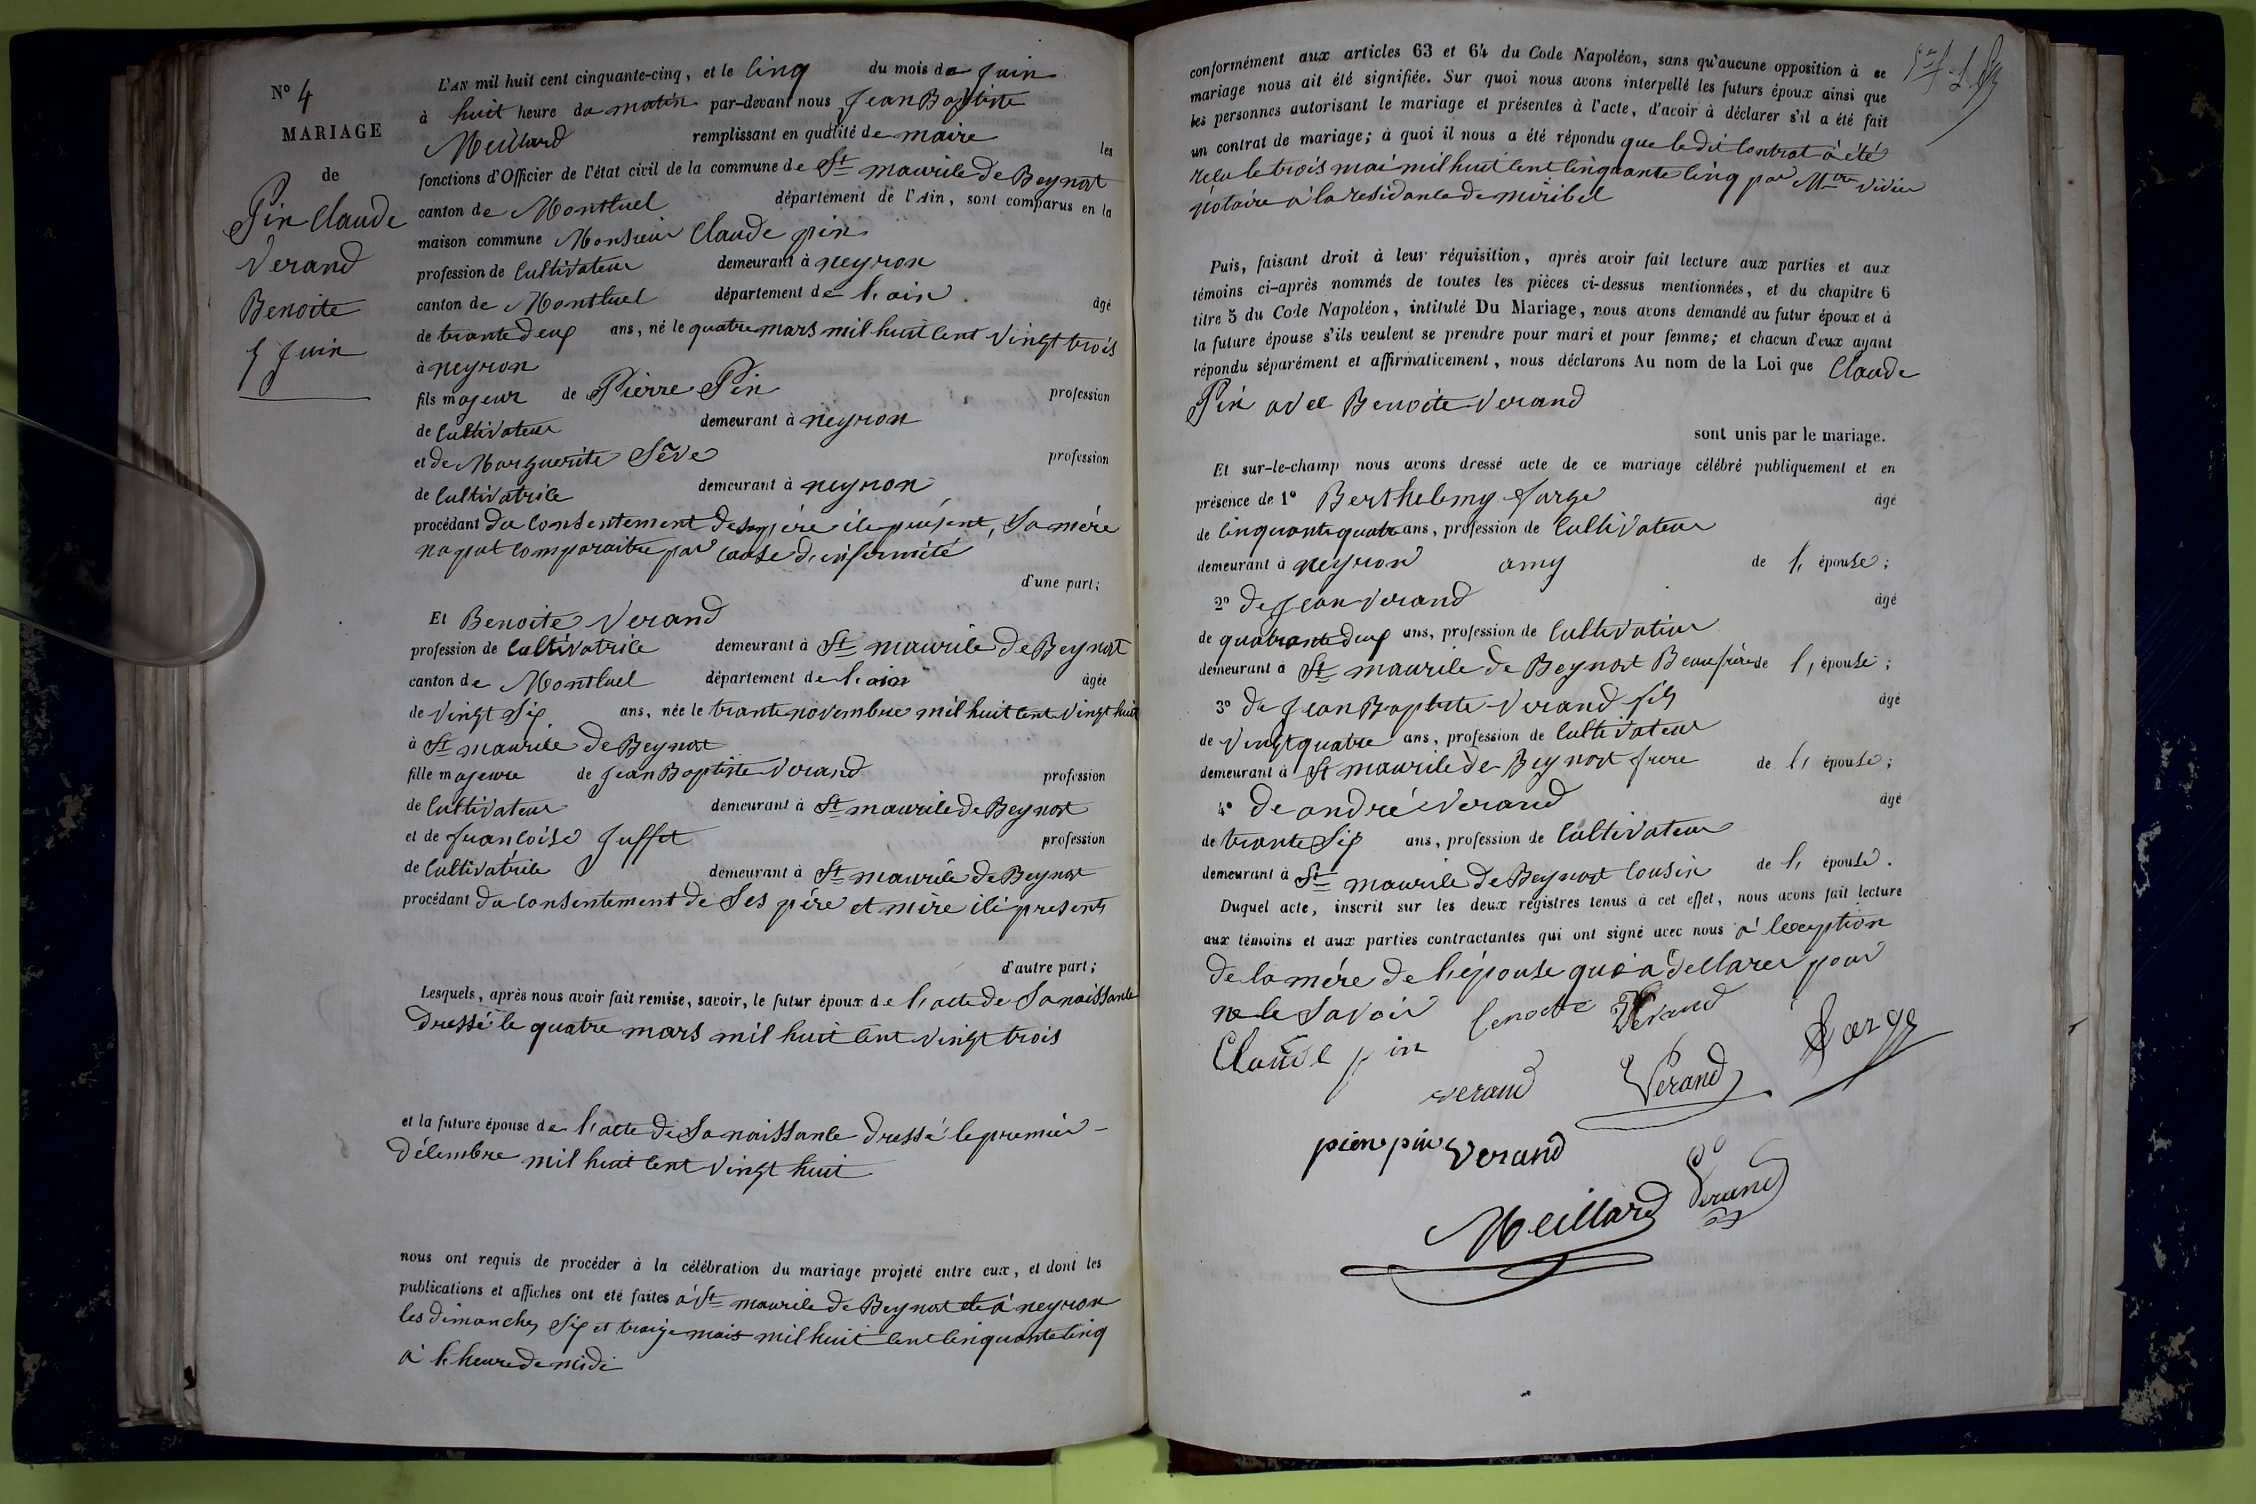 N° 4
MARIAGE
de
Pin Claude
Verand
Benoite
5 Juin
L'AN mil huit cent cinquante-cinq, et le cinq du mois de Juin
à huit heure du matin par-devant nous Jean Baptiste
Meillard remplissant en qualité de maire les
fonctions d'Officier de l'état civil de la commune de St maurice de Beynost
canton de Montluel département de l'Ain, sont comparus en la
maison commune Monsieur Claude pin
profession de cultivateur demeurant à neyron
canton de Montluel département de l'ain âgé
de trante deux ans, né le quatre mars mil huit cent vingt trois
à neyron
fils majeur de Pierre Pin profession
de cultivateur demeurant à neyron
et de Marguerite Sève profession
de cultivatrice demeurant à neyron
procédant du consentement de son père ici présent, sa mère
na put comparaitre par cause d'infirmité
d'une part;
Et Benoite Verand
profession de cultivatrice demeurant à St maurice de Beynost
canton de Montluel département de l'ain âgée
de vingt six ans, née le trante novembre mil huit cent vingt huit
à St maurice de Beynost
fille majeure de Jean Baptiste Verand profession
de cultivateur demeurant à St maurice de Beynost
et de francoise Juffet profession
de cultivatrice demeurant à St maurice de Beynost
procédant du consentement de ses père et mere ici presents
d'autre part;
Lesquels, après nous avoir fait remise, savoir, le futur époux de l'acte de sa naissance
dressé le quatre mars mil huit cent vingt trois
et la future épouse de l'acte de sa naissance dressé le premier
décembre mil huit cent vingt huit
nous ont requis de procéder à la célébration du mariage projeté entre eux, et dont les
publications et affiches ont été faites à St maurice de Beynost et à neyron
les dimanches six et traize mais mil huit cent cinquante cinq
à l'heure de midi
conformément aux articles 63 et 64 du Code Napoléon, sans qu'aucune opposition à ce
mariage nous ait été signifiée. Sur quoi nous avons interpellé les futurs époux ainsi que
les personnes autorisant le mariage et présentes à l'acte, d'avoir à déclarer s'il a été fait
un contrat de mariage; à quoi il nous a été répondu que le dit contrat à été
recu le trois mai mil huit cent cinquante cinq par Mtre vidier
notaire à la residance de miribel
Puis, faisant droit à leur réquisition, après avoir fait lecture aux parties et aux
témoins ci-après nommés de toutes les pièces ci-dessus mentionnées, et du chapitre 6
titre 5 du Code Napoléon, intitulé Du Mariage, nous avons demandé au futur époux et à
la future épouse s'ils veulent se prendre pour mari et pour femme; et chacun d'eux ayant
répondu séparément et affirmativement, nous déclarons Au nom de la Loi que Claude
Pin avec Benoite Verand
sont unis par le mariage.
Et sur-le-champ nous avons dressé acte de ce mariage célébré publiquement et en
présence de 1° Berthelemy farge âgé
de cinquante quatre ans, profession de cultivateur
demeurant à neyron amy de l'épouse;
2° de Jean Verand âgé
de quatrante deux ans, profession de cultivateur
demeurant à St maurice de Beynost Beaufrère de l'épouse;
3° de Jean Baptiste Verand fils âgé
de vingt quatre ans, profession de cultivateur
demeurant à St maurice de Beynost frere de l'épouse;
4° de andré Verand âgé
de trante six ans, profession de cultivateur
demeurant à St maurice de Beynost cousin de l'épouse.
Duquel acte, inscrit sur les deux régistres tenus à cet effet, nous avons fait lecture
aux témoins et aux parties contractantes qui ont signé avec nous à lexeption
de la mére de l'épouse qui à declarer pour
ne le savoir benoite Verand
Claude pin farge
verand Verand
pierre pin Verand
Meillard Verand